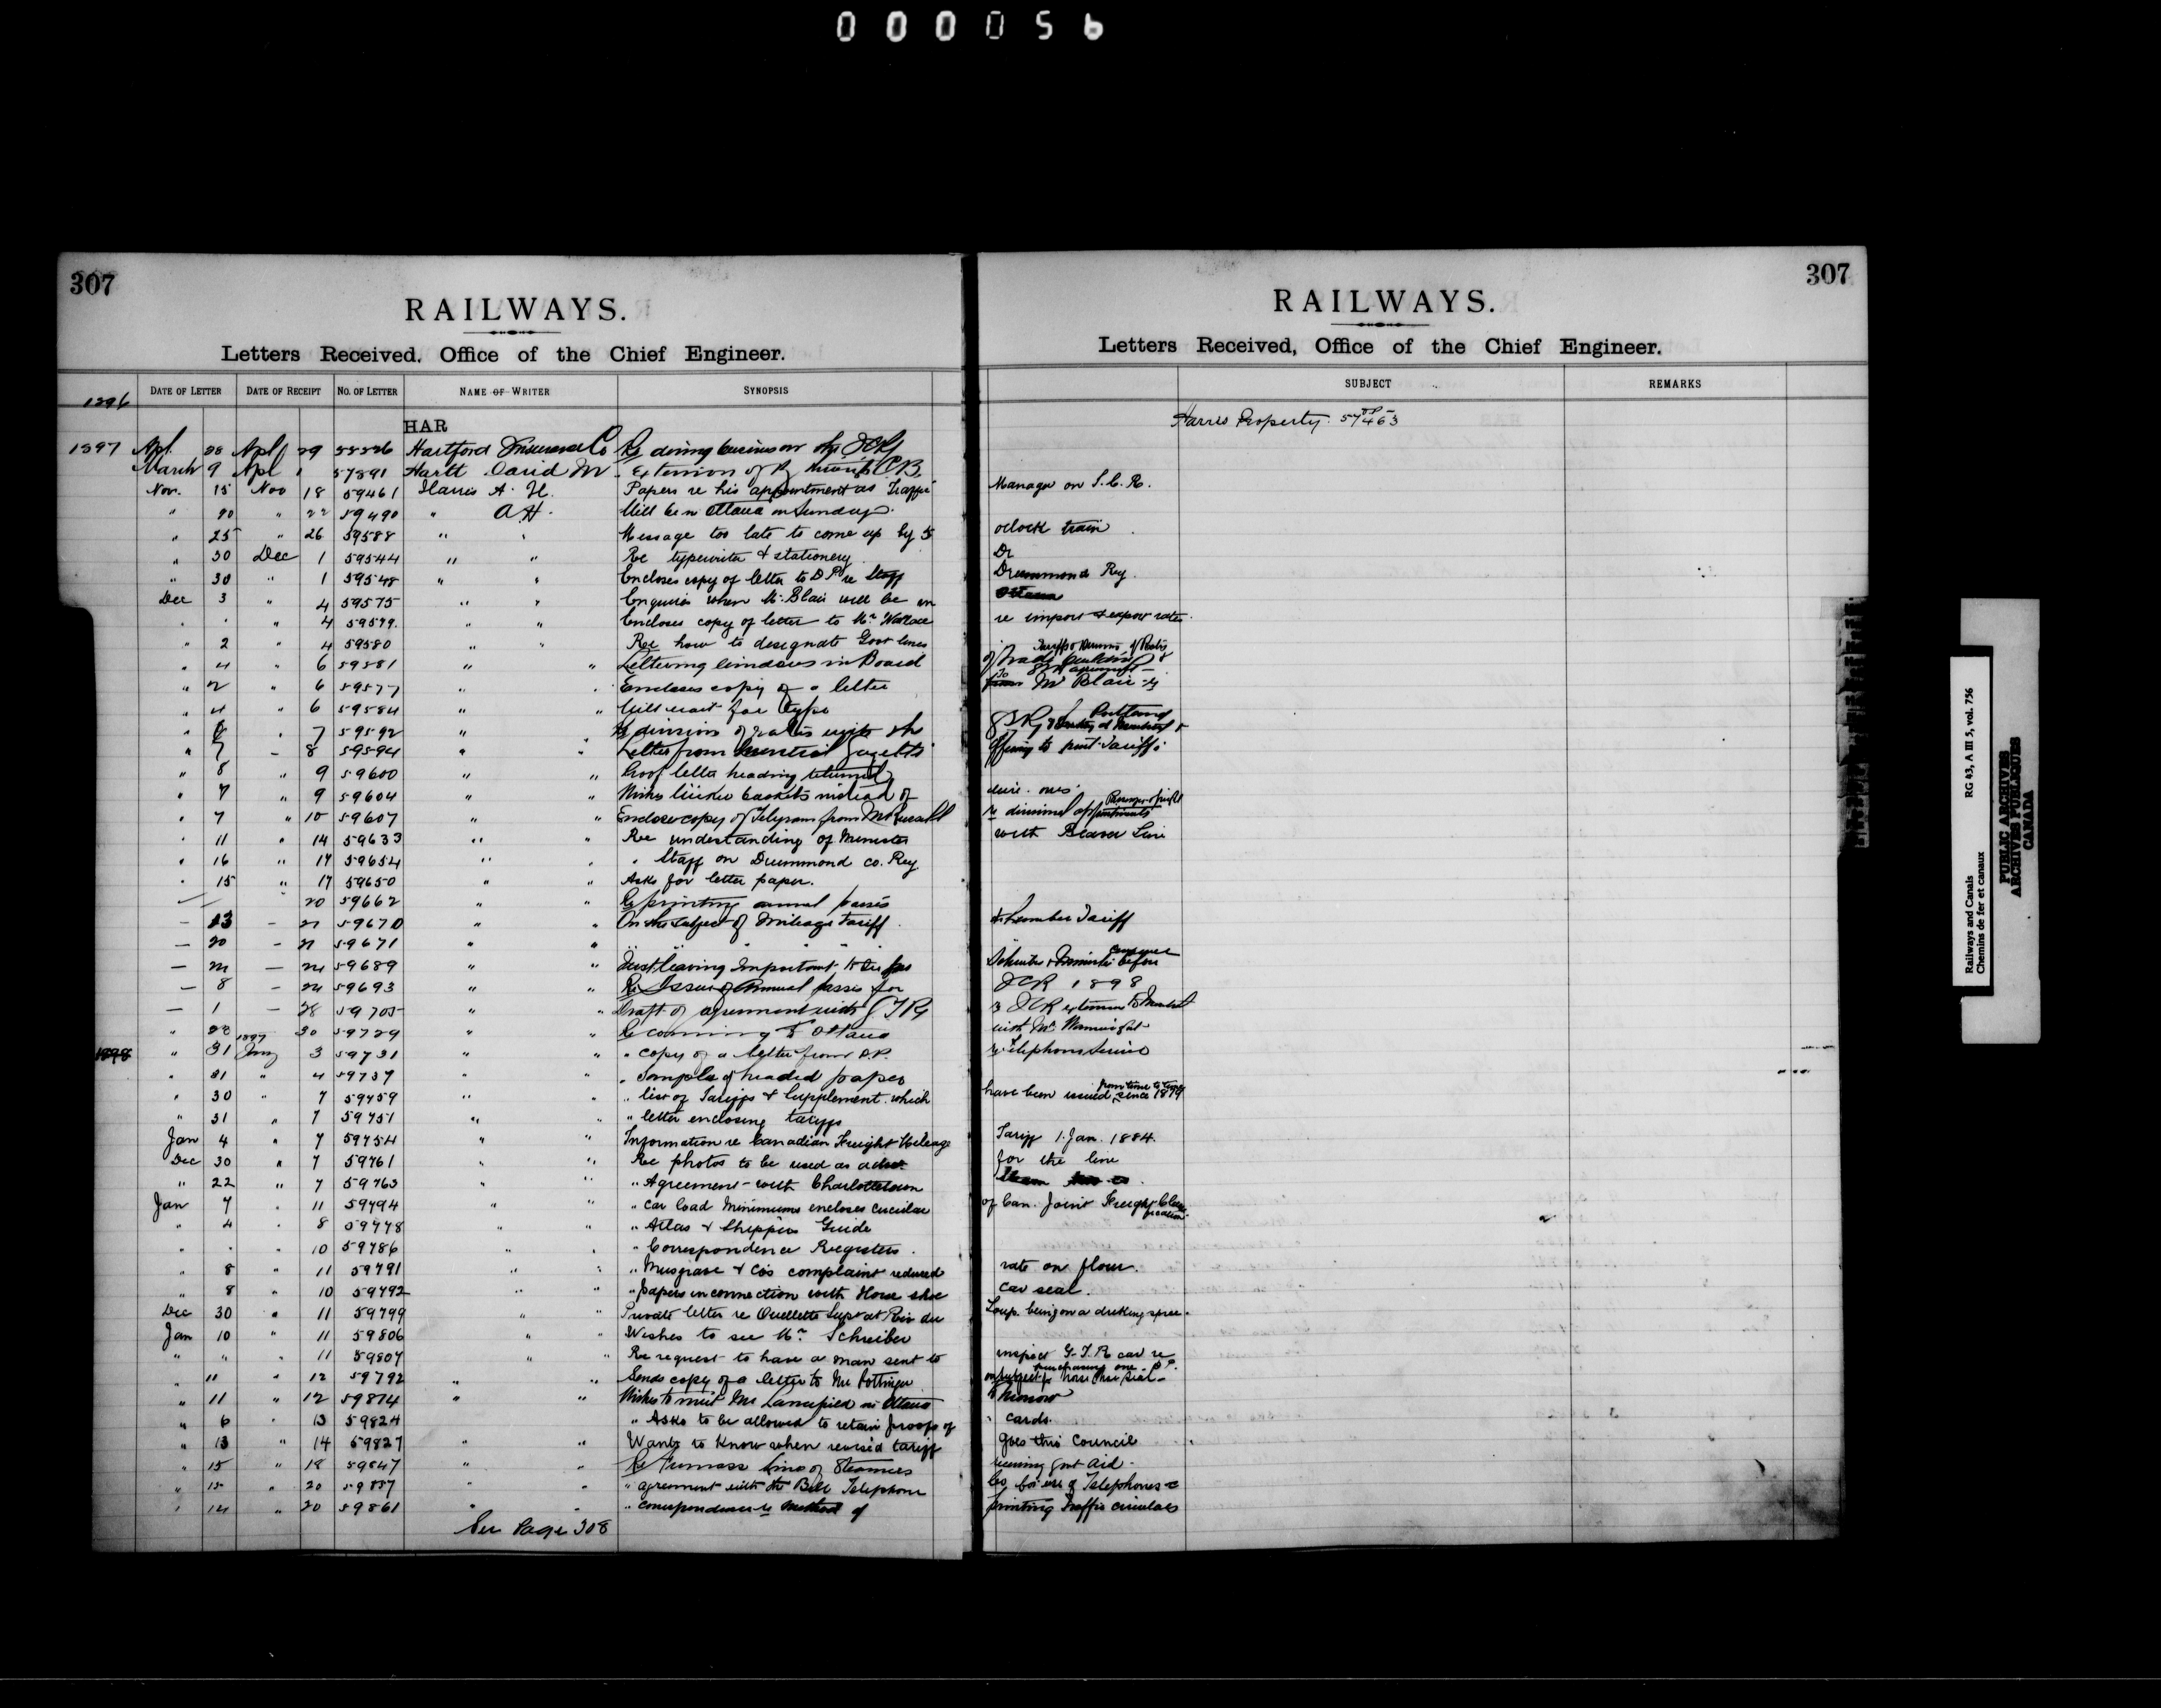 000056
307
RAILWAYS.
Letters Received, Office of the Chief Engineer.
DATE OF LETTER DATE OF RECEIPT NO. OF LETTER NAME OF WRITER SYNOPSIS
1896
HAR
1897 Apl 28 Apl 29 Hartford Insurance Co Re doing business on the ICRy
March 9 Apl 1 57891 Hartt David M Extension of Ry through C.B.
Nov. 15 Nov 18 59461 Harris A. H. Papers re his appointment as Traffic
" 20 " 22 59490 " A H. Will be in Ottawa on Sunday
" 25 " 26 59588 " " Message too late to come up by 5
" 30 Dec 1 59544 " " Re typewriter & stationery
" 30 " 1 59548 " " Encloses copy of letter to D P re Staff
Dec 3 " 4 59575 " " Enquires when Mr Blair will be in
" " " 4 59579 " " Encloses copy of letter to Mr Wallace
" 2 " 4 59580 " " Re how to designate Govt lines
" 4 " 6 59581 " " Lettering windows in Board
" 2 " 6 59577 " " Encloses copy of a letter
" 4 " 6 59584 " " Will wait for type
" 6 " 7 59592 " " Re division of rates with the
" 7 - 8 59594 " " Letter from Montreal Gazette
" 8 " 9 59600 " " Proof letter heading returned
" 7 " 9 59604 " " Wishes wicker baskets instead of
" 7 " 10 59607 " " Encloses copy of Telegram from Mr
" 11 " 14 59633 " " Re understanding of Minister
" 16 " 17 59654 " " " Staff on Drummond Co. Ry
" 15 " 17 59650 " " Asks for letter paper.
20 59662 " " Re printing annual passes
- 13 - 21 59670 " " On the subject of Mileage Tariff
- 20 - 21 59671 " " " " " "
- 21 - 24 59689 " " Just leaving Important to
- 8 - 24 59693 " " Re Issue of Annual passes for
- 1 - 28 59705 " " Draft of agreement with G T Ry
" 28 30 59729 " " Re coming to Ottawa
1898 " 31 1897 Jany 3 59731 " " " copy of a letter from D.P.
" 31 " 4 59737 " " " sample of headed paper
" 30 " 7 59759 " " " list of Tariffs & Supplement which
" 31 " 7 59751 " " " letter enclosing tariffs
Jan 4 " 7 59754 " " Information re Canadian Freight Mileage
Dec 30 " 7 59761 " " Re photos to be used as advt
" 22 " 7 59763 " " " Agreement with Charlottetown
Jan 7 " 11 59794 " " " Car load Minimums encloses circular
" 4 " 8 59778 " " " Atlas & Shippers Guide
" " " 10 59786 " " " Correspondence Registers.
" 8 " 11 59791 " " " Musgrave & Cos complaint reduced
" 8 " 10 59792 " " " papers in connection with Horse shoe
Dec 30 " 11 59799 " " Private letter re Ouellette Supt at Riv du
Jan 10 " 11 59806 " " Wishes to see Mr Schreiber
" " " 11 59807 " " Re request to have a man sent to
" 11 " 12 59792 " " Sends copy of a letter to Mr Pottinger
" 11 " 12 59814 " " Wishes to meet Mr Lansfield in Ottawa
" 6 " 13 59824 " Asks to be allowed to retain proofs of
" 13 " 14 59827 " " Wants to know when revised tariff
" 15 " 18 59847 " " Re Furness line of Steamers
" 15 " 20 59857 " " " agreement with the Bell Telephone
" 14 " 20 59861 " " " correspondence re method of
See Page 308
307
RAILWAYS.
Letters Received, Office of the Chief Engineer.
SUBJECT REMARKS
Harris Property. 57463
Manager on I.C.R.
oclock train
Dr
Drummond Ry.
Ottawa
re import & export rates.
of Trade building
from To Mr Blair re
Portland
offering to print Tariffs.
wire ones.
re divisional appointments Passenger & freight
with Beaver Line
& Lumber Tariff
ICR 1898
& ICR extension to Montreal
with Mr Wainwright
re Telephone Service
have been issued from time to time since 1879
Tariff 1. Jan. 1884.
for the line
Steam
of Can. Joint Freight Classification.
rate on flour.
car seal.
Loup. being on a drinking spree.
inspect G.T.R car re
purchasing one. D P.
on subject of Horse Shoe Seal
tomorrow
" cards.
goes this Council
receiving govt aid.
Co for use of Telephones
printing Traffic circulars
Railways and Canals RG 43, A III 5, vol. 756
Chemins de fer et canaux
PUBLIC ARCHIVES
ARCHIVES PUBLIQUES
CANADA